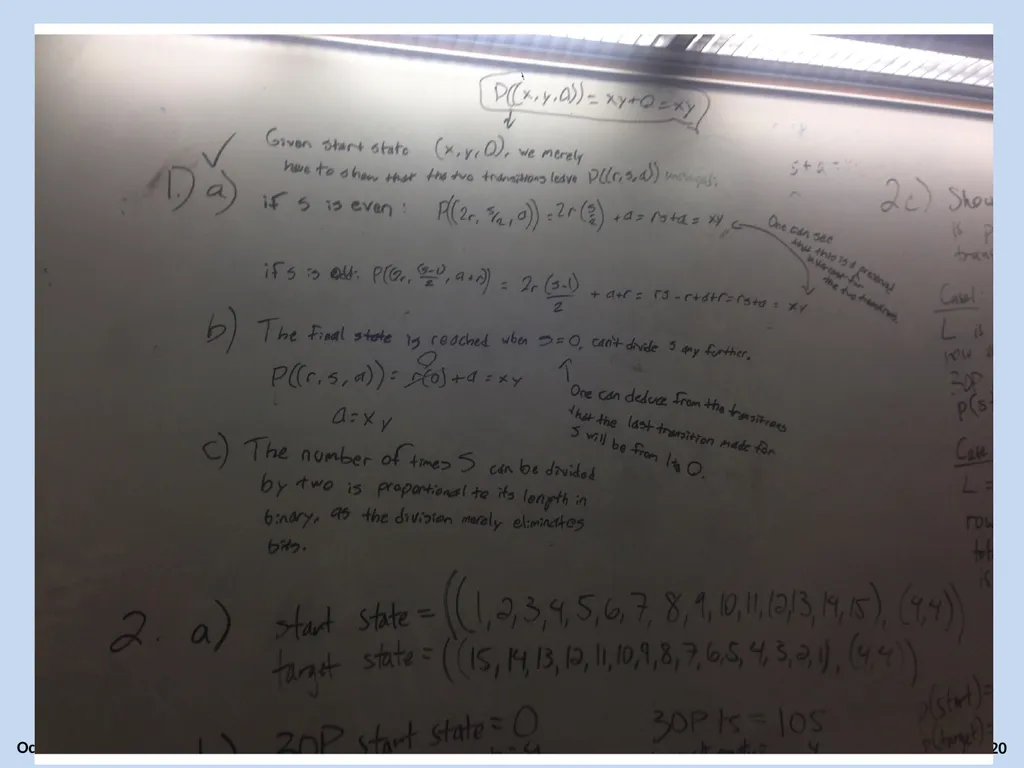 P((x,y,0)) = xy+0 = xy
Given start state (x,y,0), we merely
have to show that the two transitions leave P((r,s,a)) unchanged.
1.) a)
if s is even: P((2r, s/2, a)) = 2r(s/2) + a = rs+a = xy
One can see
that this is a preserved
invariant for
the two transitions
if s is odd: P((2r, (s-1)/2, a+r)) = 2r (s-1)/2 + a+r = rs-r+a+r = rs+a = xy
b) The final state is reached when s=0, can't divide s any further.
P((r,s,a)) = r(0) + a = xy
0
a = xy
One can deduce from the transitions
that the last transition made for
s will be from 1 to 0.
c) The number of times S can be divided
by two is proportional to its length in
binary, as the division merely eliminates
bits.
2. a) start state = ((1,2,3,4,5,6,7,8,9,10,11,12,13,14,15), (4,4))
target state = ((15,14,13,12,11,10,9,8,7,6,5,4,3,2,1), (4,4))
start state = 0
= 105
s+a =
2c) Show
is p
trans
Case 1
L is
row
p(s
Case
L =
row
is
p(start) =
p(target) =
Oc
20